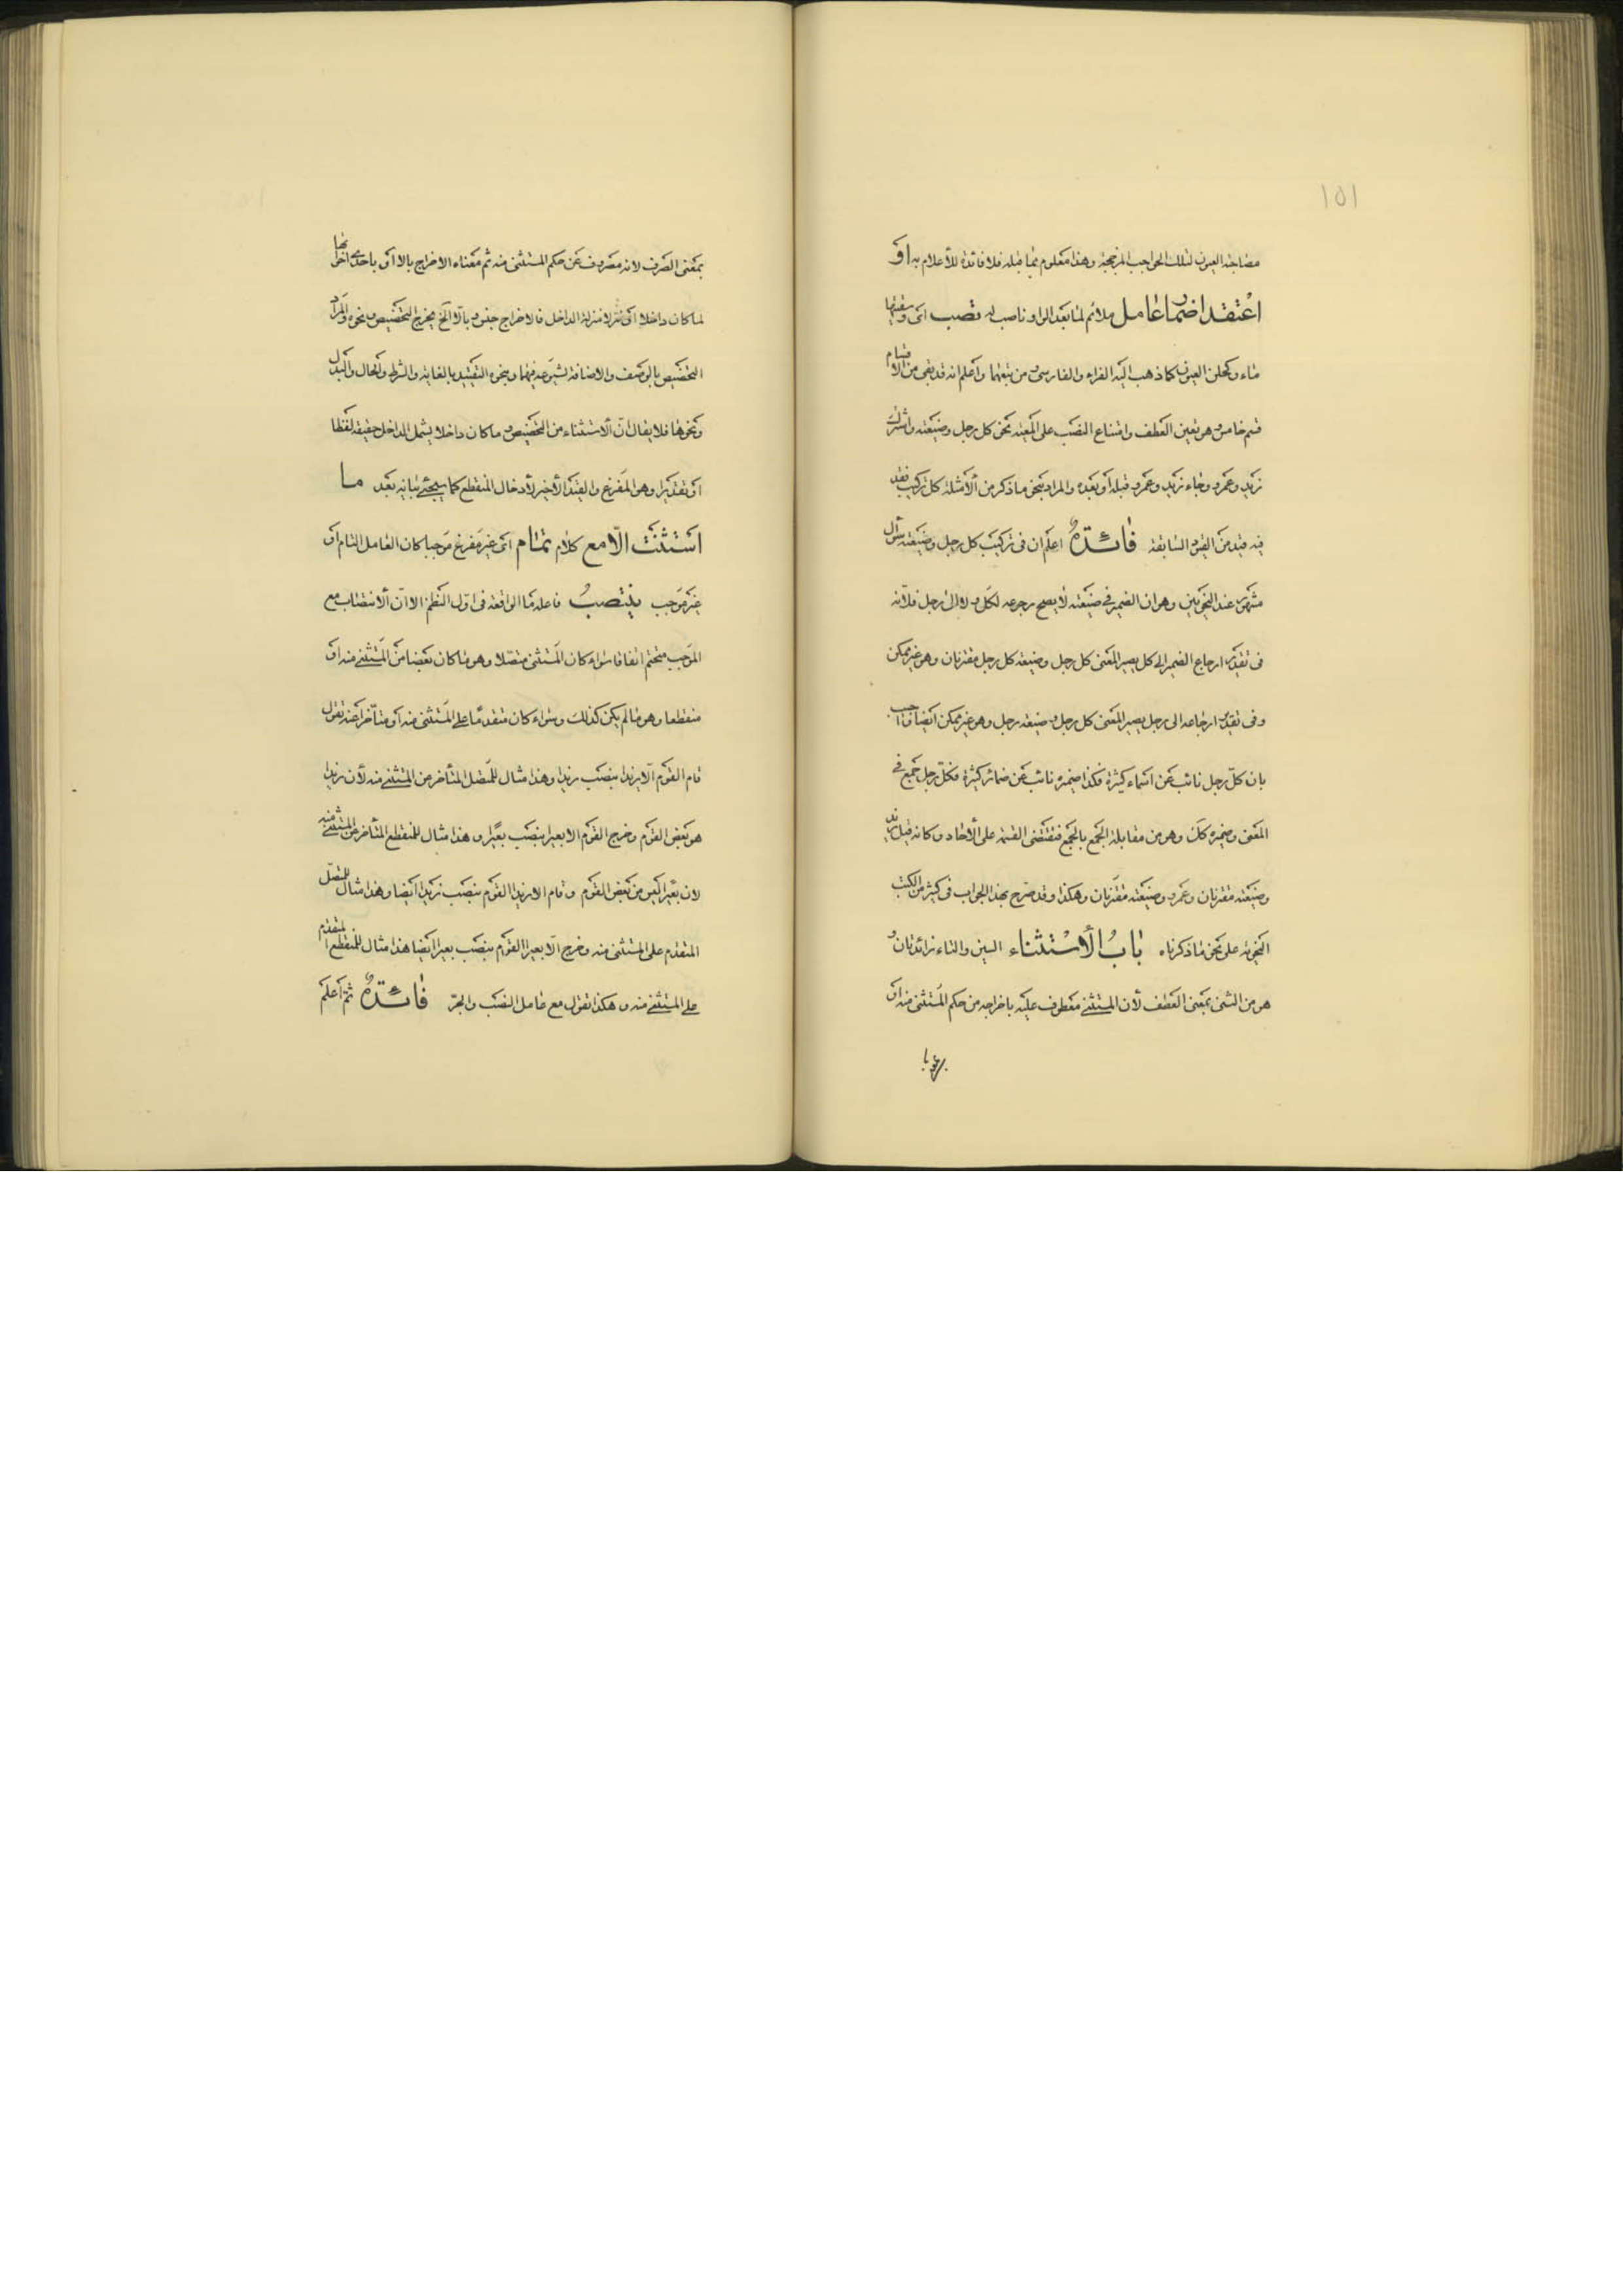 ١٥١
مصاحبة العيون لتلك الحواجب المزججة وهذا معلوم مما قبله فلا فائدة للأعلام به او
اعتقد اضمار عامل ملائم لما بعد الواو ناصب له تصب اى وسقيتها
ماء وكحلن العيون كما ذهب اليه الفراء والفارسى ومن تبعهما واعلم انه قد بقى من الاقسام
قسم خامس وهو تعين العطف وامتناع النصب على المعية نحو كل رجل وضيعته واشترك
زيد وعمرو وجاء زيد وعمرو قبله او بعده والمراد بنحو ما ذكر من الأمثلة كل تركيب فقد
فيه قيد من القيود السابقة فائدة اعلم ان فى تركيب كل رجل وضيعته سؤال
مشهور عند النحويين وهو ان الضمير فى ضيعته لا يصح رجوعه لكل ولا الى رجل فلانه
فى تقدير ارجاع الضمير الى كل يصير المعنى كل رجل وضيعة كل رجل مقترنان وهو غير ممكن
وفى تقدير ارجاعه الى رجل يصير المعنى كل رجل وضيعة رجل وهو غير ممكن ايضا فاجيب
بان كل رجل نائب عن اسماء كثيرة فكذا ضميره نائب عن ضمائر كثيرة فكل رجل جمع فى
المعنى وضميره كك وهو من مقابلة الجمع بالجمع فتقتضى القسمة على الأحاد وكانه قيل زيد
وضيعته مقترنان وعمرو وضيعته مقترنان وهكذا وقد صرح بهذا الجواب فى كثير من الكتب
النحوية على نحو ما ذكرناه باب الأستثناء السين والتاء زائدتان و
هو من الثنى بمعنى العطف لأن المستثنى معطوف عليه باخراجه من حكم المستثنى منه او
بمعنى الصرف لانه مصروف عن حكم المستثنى منه ثم معناه الاخراج بالا او باحدى اخواتها
لما كان داخلا او منزلا منزلة الداخل فالاخراج جنس وبالا الخ يخرج التخصيص ونحوه والمراد
التخصيص بالوصف والاضافة لشيوعه فيهما وبنحوه التقييد بالغاية والشرط والحال والبدل
ونحوها فلا يقال ان ألاستثناء من التخصيص وما كان داخلا يشمل الداخل حقيقة لفظا
او تقديرا وهو المفرغ والقيد الأخير لأدخال المنقطع كما سيجئ بيانه بعد ما
استثنت الا مع كلام تمام اى غير مفرغ موجبا كان العامل التام او
غير موجب ينتصب فاعله ما الواقعة فى اول النظم الا ان ألانتصاب مع
الموجب متحتم اتفاقا سواء كان المستثنى متصلا وهو ما كان بعضا من المستثنى منه او
منقطعا وهو ما لم يكن كذلك وسواء كان متقدما على المستثنى منه او متأخرا عنه تقول
قام القوم الا زيدا بنصب زيدا وهذا مثال للمتصل المتأخر من المستثنى منه لأن زيدا
هو بعض القوم وخرج القوم الا بعيرا بنصب بعيرا وهذا مثال للمنقطع المتأخر من المستثنى منه
لان بعيرا ليس من بعض القوم وقام الا زيدا القوم بنصب زيدا ايضا وهذا مثال للمتصل
المتقدم على المستثنى منه وخرج الا بعيرا القوم بنصب بعيرا ايضا هذا مثال للمنقطع المتقدم
على المستثنى منه وهكذا تقول مع عامل النصب والجر فائدة ثم اعلم